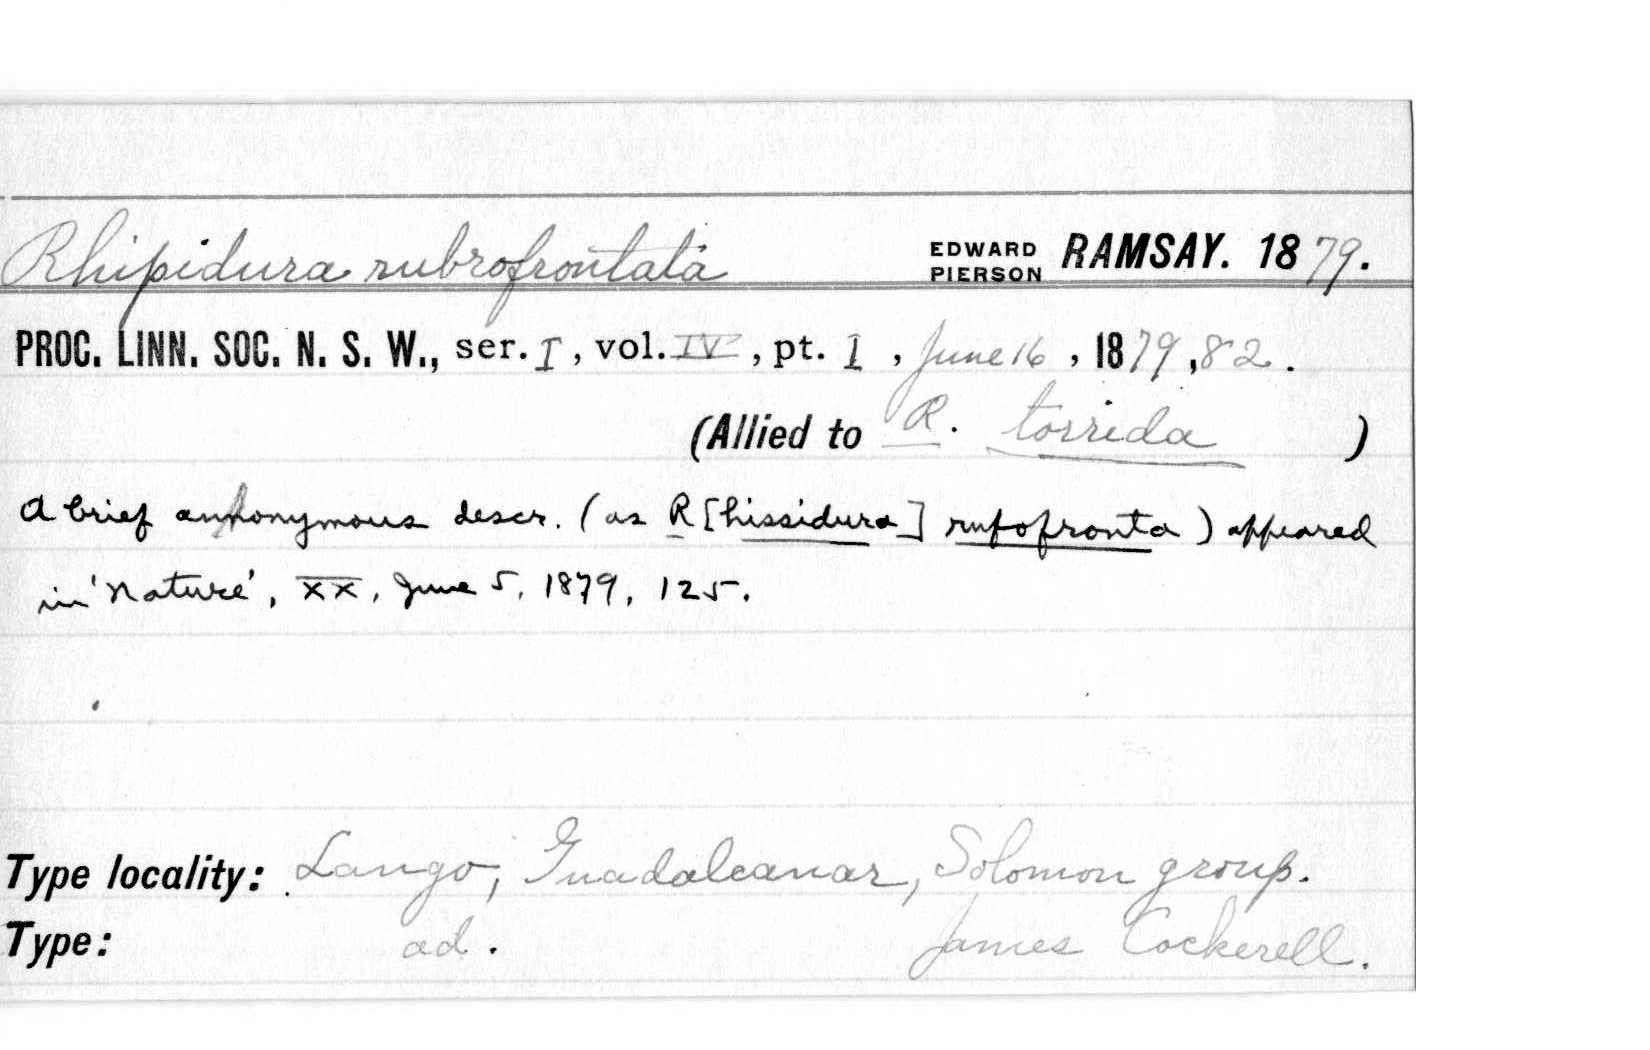 Rhipidura rubrofrontata EDWARD PIERSON RAMSAY. 1879.
PROC. LINN. SOC. N. S. W., ser. I, vol. IV, pt. 1, June 16, 1879, 82.
(Allied to R. torrida )
A brief anhonymous descr. (as R[hissidura] rufofronta) appeared
in 'Nature', XX, June 5, 1879, 125.
Type locality: Lango, Guadalcanar, Solomon group.
Type: ad. James Cockerell.